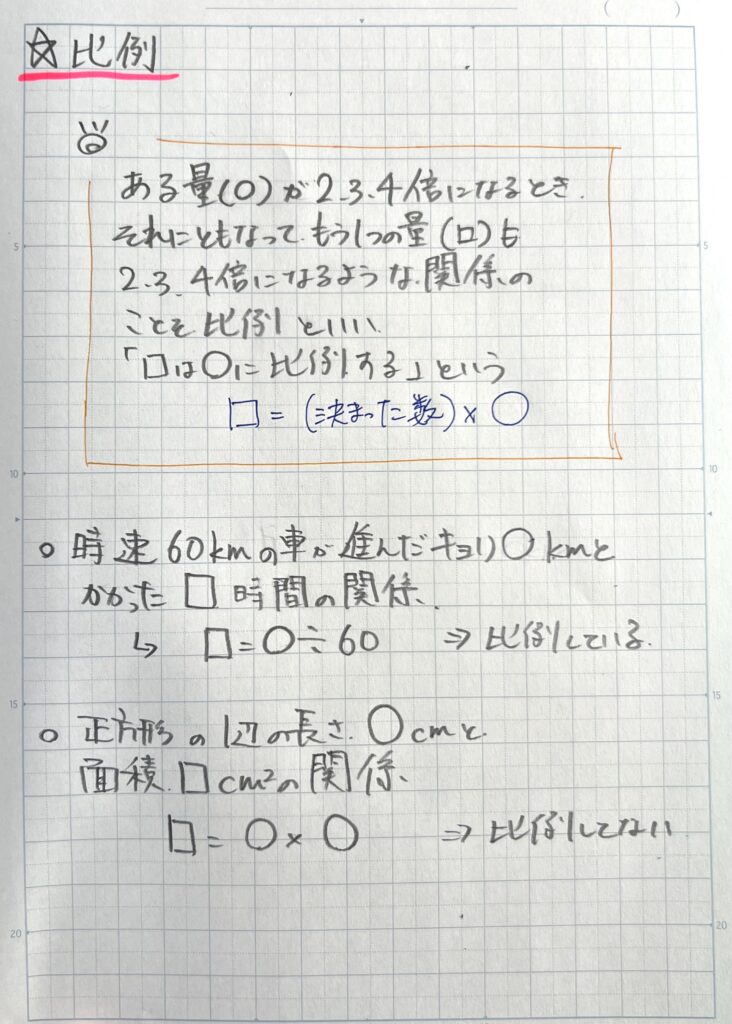 ☆比例
ある量(○)が2.3.4倍になるとき.
それにともなって.もう1つの量(□)も
2.3.4倍になるような.関係の
ことを比例といい、
「□は○に比例する」という
□=(決まった数)×○
○時速60kmの車が進んだキョリ○kmと
かかった□時間の関係.
↳ □=○÷60 ⇒比例している.
○正方形の1辺の長さ.○cmと.
面積.□cm²の関係、
□=○×○ ⇒比例してない
5
10
15
20
5
10
15
20